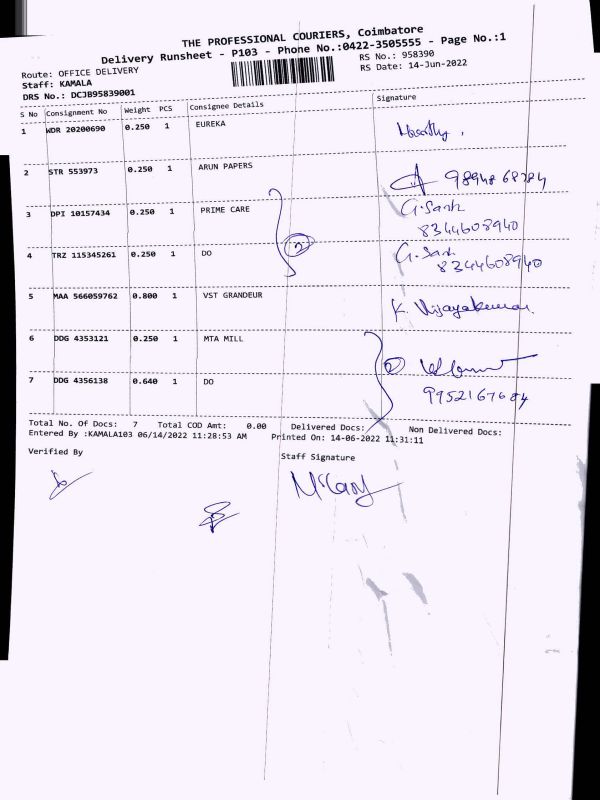 THE PROFESSIONAL COURIERS, Coimbatore
Delivery Runsheet - P103 - Phone No.:0422-3505555 - Page No.:1
Route: OFFICE DELIVERY
RS No.: 958390
Staff: KAMALA
RS Date: 14-Jun-2022
DRS No.: DCJB95839001
S No Consignment No Weight PCS Consignee Details Signature
1 WDR 20200690 0.250 1 EUREKA
2 STR 553973 0.250 1 ARUN PAPERS 98948 68784
3 DPI 10157434 0.250 1 PRIME CARE G. Sank
8344608940
2
4 TRZ 115345261 0.250 1 DO G. Sank
8344608940
5 MAA 566059762 0.800 1 VST GRANDEUR K. Vijayakumar.
6 DDG 4353121 0.250 1 MTA MILL
2
7 DDG 4356138 0.640 1 DO 9952167684
Total No. Of Docs: 7 Total COD Amt: 0.00 Delivered Docs: Non Delivered Docs:
Entered By :KAMALA103 06/14/2022 11:28:53 AM Printed On: 14-06-2022 11:31:11
Verified By Staff Signature